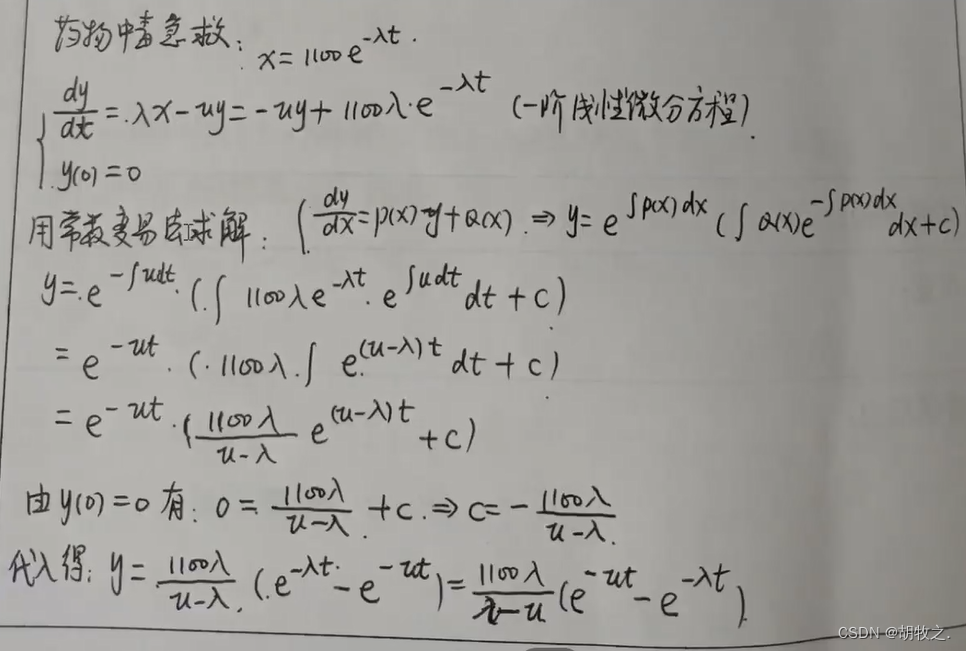 药物中毒急救: x = 1100e^{-λt}.
{ dy/dt = λx - uy = -uy + 1100λ·e^{-λt} (一阶线性微分方程).
y(0) = 0
用常数变易法求解: { dy/dx = p(x)·y + Q(x). ⇒ y = e^{∫p(x)dx} (∫ Q(x)e^{-∫p(x)dx} dx + c)
y = e^{-∫udt}·(∫ 1100λe^{-λt}·e^{∫udt} dt + c).
= e^{-ut}·(1100λ·∫ e^{(u-λ)t} dt + c).
= e^{-ut}·(1100λ/(u-λ) e^{(u-λ)t} + c)
由 y(0) = 0 有: 0 = 1100λ/(u-λ) + c. ⇒ c = - 1100λ/(u-λ).
代入得: y = 1100λ/(u-λ) (e^{-λt} - e^{-ut}) = 1100λ/(λ-u) (e^{-ut} - e^{-λt}).
CSDN @胡牧之.